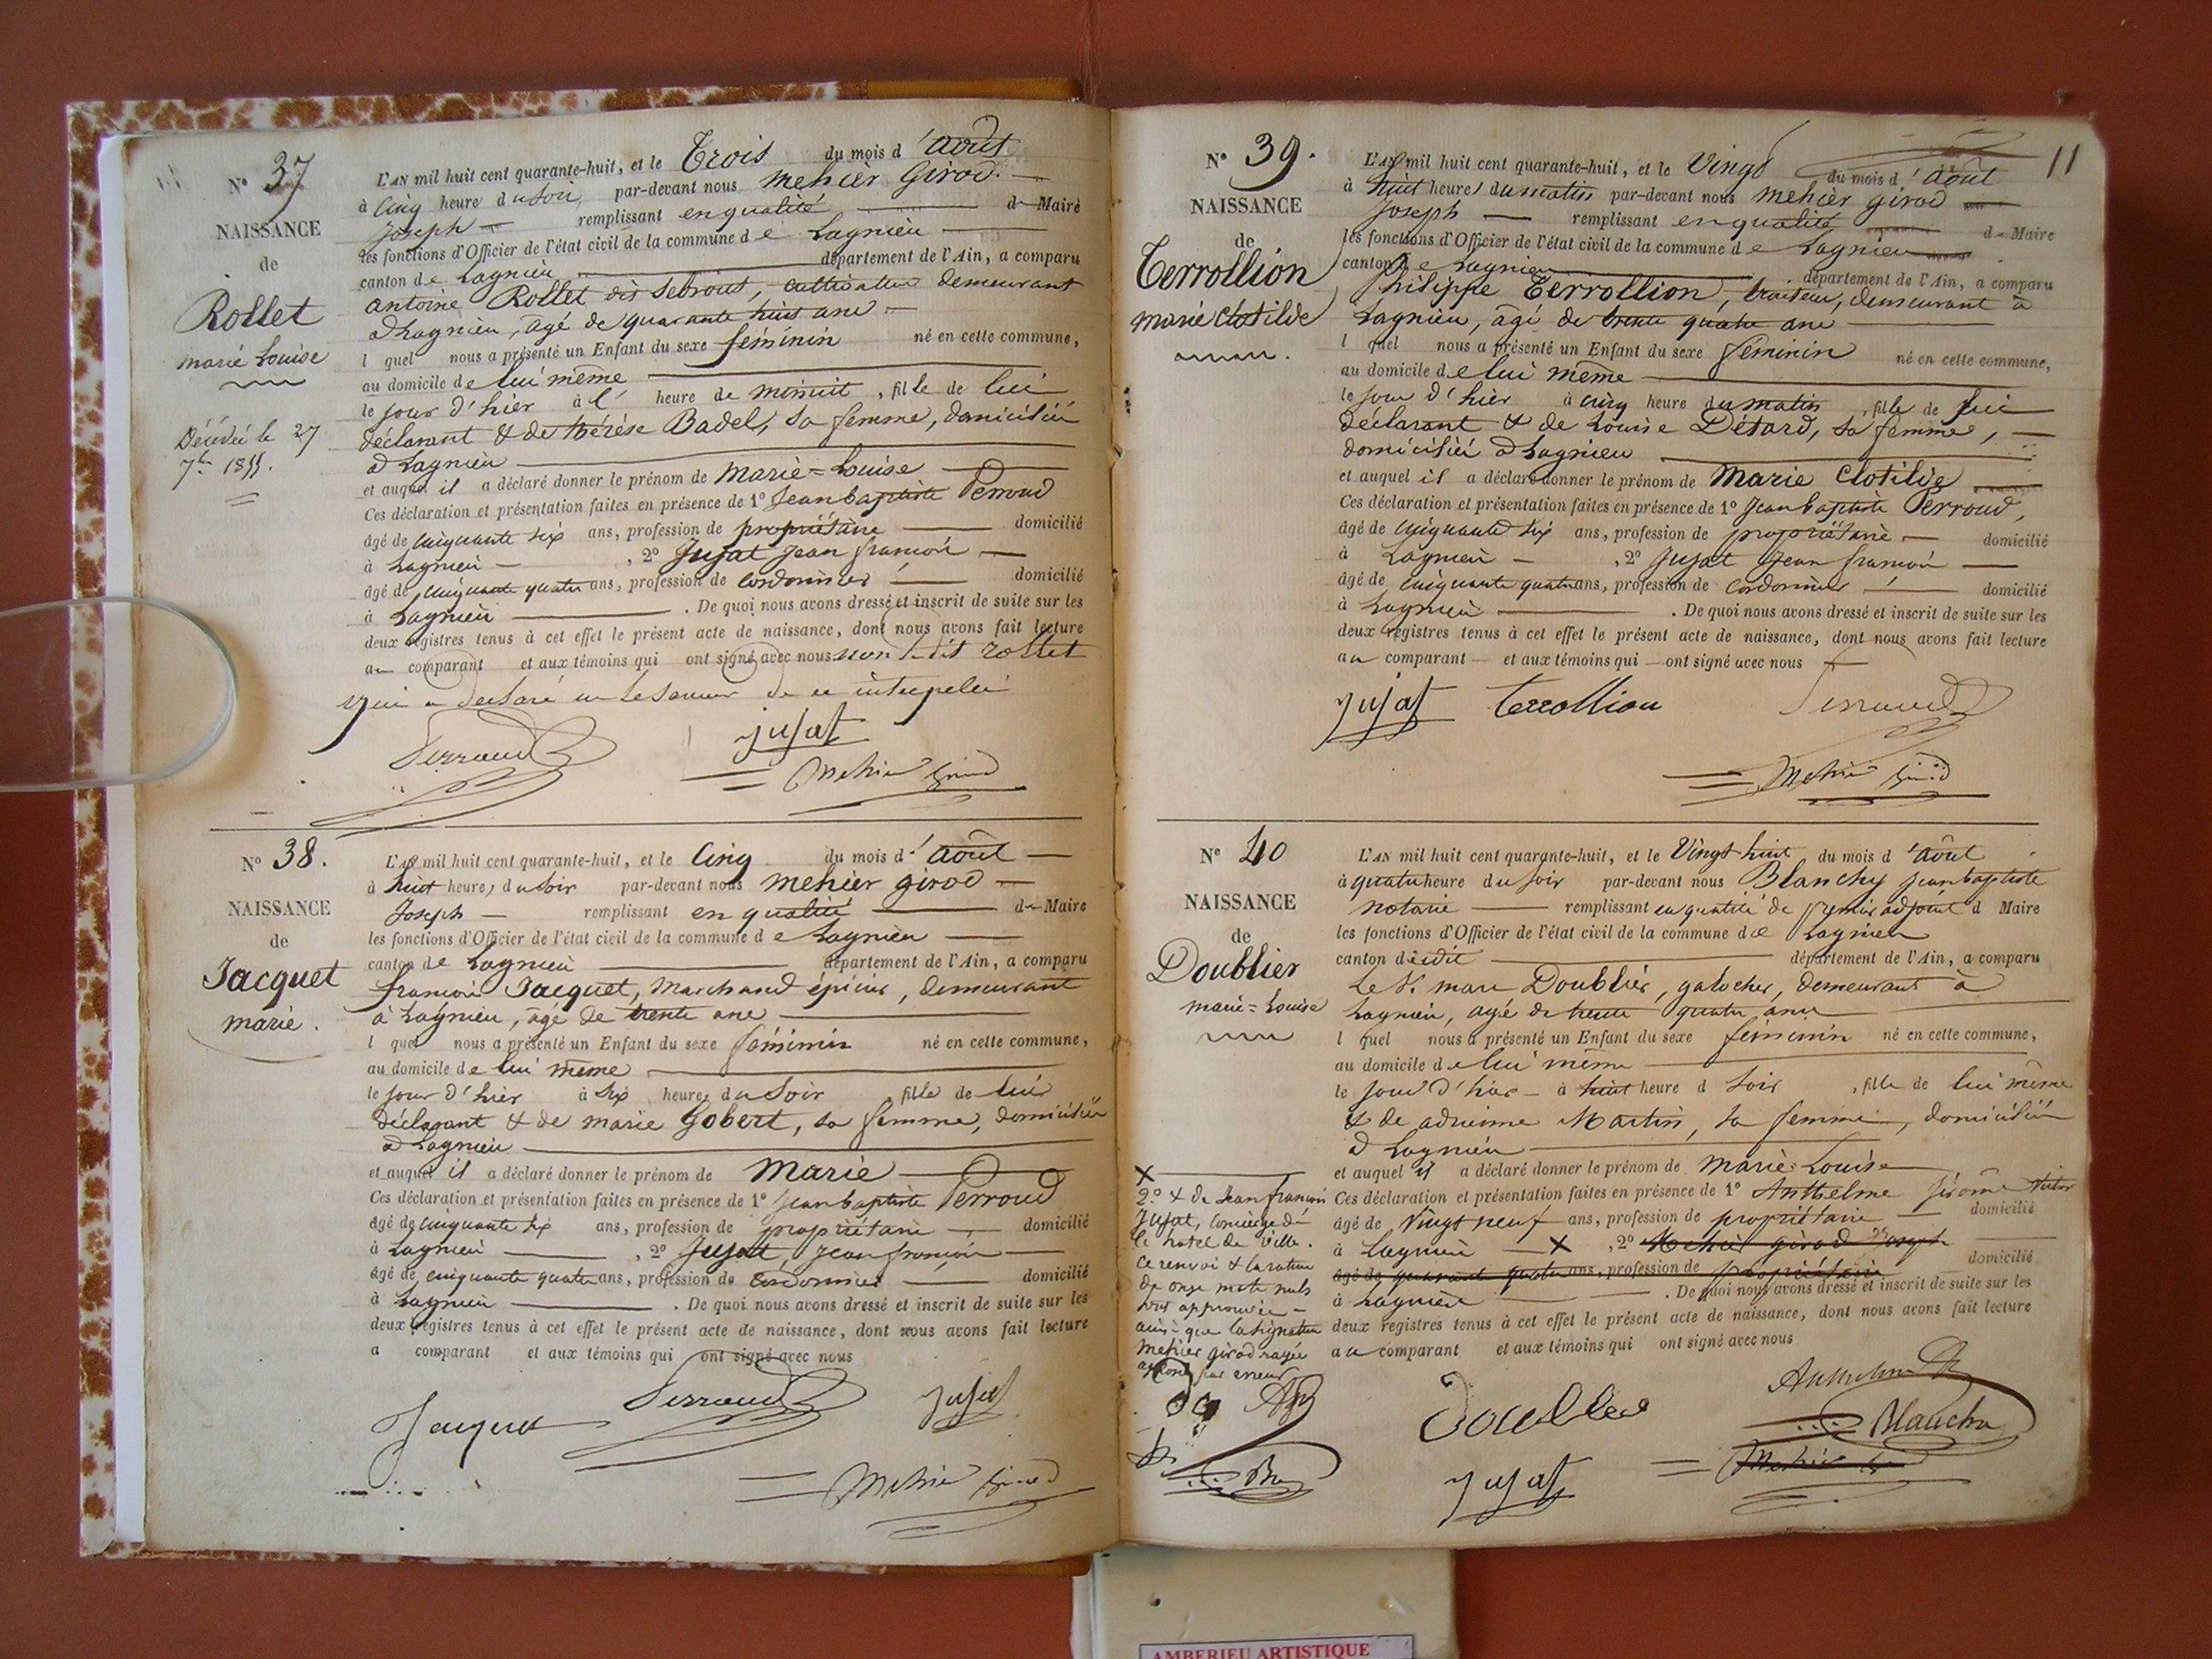 N° 37
NAISSANCE
de
Rollet
marie Louise
Décédée le 27
7bre 1855.
L'AN mil huit cent quarante-huit, et le Trois du mois d'août
à Cinq heure du soir, par-devant nous mehier Girod
Joseph remplissant en qualité de Maire
les fonctions d'Officier de l'état civil de la commune de Lagnieu
canton de Lagnieu département de l'Ain, a comparu
antoine Rollet dit cultivateur demeurant
à Lagnieu, âgé de quarante huit ans
l quel nous a présenté un Enfant du sexe féminin né en cette commune,
au domicile de lui même
le jour d'hier à l' heure de minuit, fille de lui
déclarant & de thérèse Badel, sa femme, domiciliée
à Lagnieu
et auquel il a déclaré donner le prénom de Marie=Louise
Ces déclaration et présentation faites en présence de 1° Jean baptiste Perroud
âgé de cinquante six ans, profession de propriétaire domicilié
à Lagnieu, 2° Jujat Jean françois
âgé de cinquante quatre ans, profession de cordonnier domicilié
à Lagnieu. De quoi nous avons dressé et inscrit de suite sur les
deux registres tenus à cet effet le présent acte de naissance, dont nous avons fait lecture
au comparant et aux témoins qui ont signé avec nous non ledit rollet
qui a déclaré ne le savoir de ce interpelé
Perroud Jujat
Mehier Girod
N° 38.
NAISSANCE
de
Jacquet
marie.
L'AN mil huit cent quarante-huit, et le Cinq du mois d'août
à huit heures du soir par-devant nous mehier girod
Joseph remplissant en qualité de Maire
les fonctions d'Officier de l'état civil de la commune de Lagnieu
canton de Lagnieu département de l'Ain, a comparu
françois Jacquet, Marchand épicier, demeurant
à Lagnieu, âgé de trente ans
l quel nous a présenté un Enfant du sexe féminin né en cette commune,
au domicile de lui même
le jour d'hier à six heures du soir, fille de lui
déclarant & de marie Gobert, sa femme, domiciliée
à Lagnieu
et auquel il a déclaré donner le prénom de Marie
Ces déclaration et présentation faites en présence de 1° Jean baptiste Perroud
âgé de cinquante six ans, profession de propriétaire domicilié
à Lagnieu, 2° Jujat, Jean françois
âgé de cinquante quatre ans, profession de cordonnier domicilié
à Lagnieu. De quoi nous avons dressé et inscrit de suite sur les
deux registres tenus à cet effet le présent acte de naissance, dont nous avons fait lecture
a comparant et aux témoins qui ont signé avec nous
Jacquet Perroud Jujat
Mehier Girod
11
N° 39.
NAISSANCE
de
Terrollion
marie Clotilde
L'AN mil huit cent quarante-huit, et le Vingt du mois d'août
à huit heures du matin par-devant nous mehier girod
Joseph remplissant en qualité de Maire
les fonctions d'Officier de l'état civil de la commune de Lagnieu
canton de Lagnieu département de l'Ain, a comparu
philippe Terrollion, traiteur, demeurant à
Lagnieu, âgé de trente quatre ans
l quel nous a présenté un Enfant du sexe féminin né en cette commune,
au domicile de lui même
le jour d'hier à cinq heure du matin, fille de lui
déclarant & de Louise Détard, sa femme,
domiciliée à Lagnieu
et auquel il a déclaré donner le prénom de Marie Clotilde
Ces déclaration et présentation faites en présence de 1° Jean baptiste Perroud,
âgé de cinquante six ans, profession de propriétaire domicilié
à Lagnieu, 2° Jujat Jean françois
âgé de cinquante quatre ans, profession de cordonnier domicilié
à Lagnieu. De quoi nous avons dressé et inscrit de suite sur les
deux registres tenus à cet effet le présent acte de naissance, dont nous avons fait lecture
au comparant et aux témoins qui ont signé avec nous
Jujat Terrollion Perroud
Mehier Girod
N° 40
NAISSANCE
de
Doublier
marie=Louise
L'AN mil huit cent quarante-huit, et le Vingt huit du mois d'août
à quatre heure du soir par-devant nous Blanchy Jean baptiste
notaire remplissant en qualité de premier adjoint d Maire
les fonctions d'Officier de l'état civil de la commune de Lagnieu
canton dudit département de l'Ain, a comparu
Le Sr marc Doublier, galocher, demeurant à
Lagnieu, âgé de trente quatre ans
l quel nous a présenté un Enfant du sexe féminin né en cette commune,
au domicile de lui même
le jour d'hier à huit heure d soir, fille de lui même
& de adrienne Martin, sa femme, domiciliée
à Lagnieu
et auquel il a déclaré donner le prénom de Marie=Louise
Ces déclaration et présentation faites en présence de 1° Anthelme Jérôme Victor
âgé de Vingt neuf ans, profession de propriétaire domicilié
à Lagnieu X, 2° Mehier girod Joseph
âgé de quarante quatre ans, profession de propriétaire domicilié
à Lagnieu. De quoi nous avons dressé et inscrit de suite sur les
deux registres tenus à cet effet le présent acte de naissance, dont nous avons fait lecture
au comparant et aux témoins qui ont signé avec nous
X
2° & de Jean françois
Jujat, concierge de
l'hotel de Ville.
ce renvoi & la rature
de onze mots nuls
approuvée
ainsi que la signature
mehier girod rayée
apposée par erreur
Doublier Blanchy
Jujat Mehier
AMBERIEU ARTISTIQUE